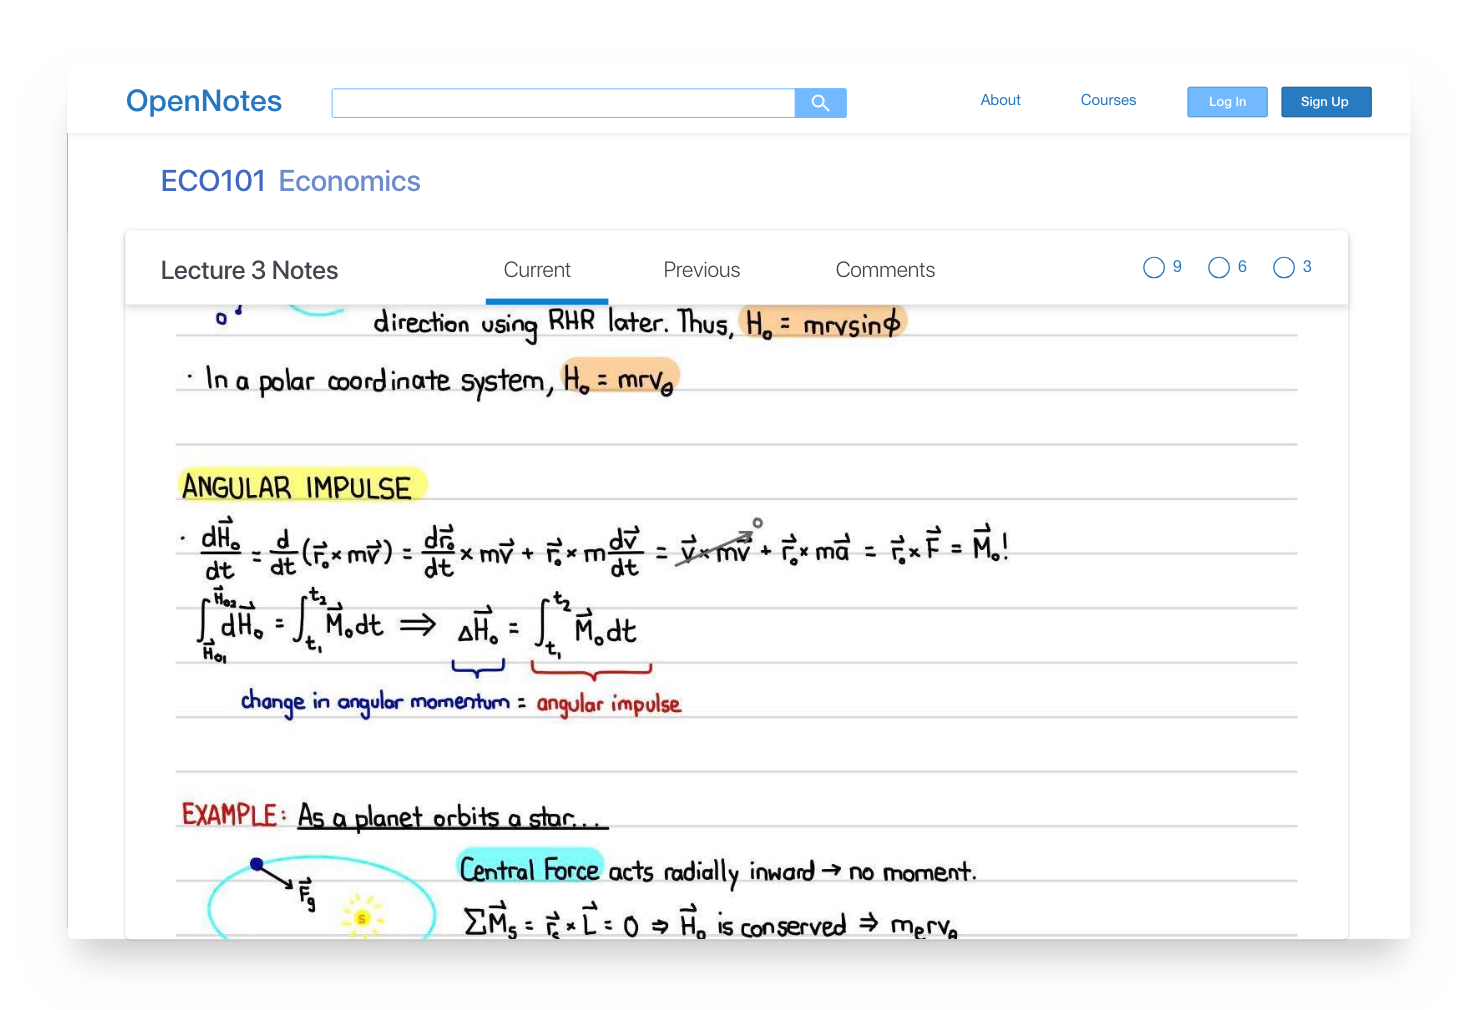 OpenNotes About Courses Log In Sign Up
ECO101 Economics
Lecture 3 Notes Current Previous Comments 9 6 3
direction using RHR later. Thus, H₀ = mrvsinϕ
· In a polar coordinate system, H₀ = mrv_θ
ANGULAR IMPULSE
· dH⃗₀/dt = d/dt (r⃗₀ × mv⃗) = dr⃗₀/dt × mv⃗ + r⃗₀ × m dv⃗/dt = v⃗ × mv⃗ 0 + r⃗₀ × ma⃗ = r⃗₀ × F⃗ = M⃗₀!
∫_H⃗₀₁^H⃗₀₂ dH⃗₀ = ∫_t₁^t₂ M⃗₀dt ⇒ ΔH⃗₀ = ∫_t₁^t₂ M⃗₀dt
change in angular momentum = angular impulse
EXAMPLE: As a planet orbits a star...
Central Force acts radially inward → no moment.
F⃗g
S
ΣM⃗ₛ = r⃗ₛ × L⃗ = 0 ⇒ H⃗₀ is conserved ⇒ mₚrv_θ